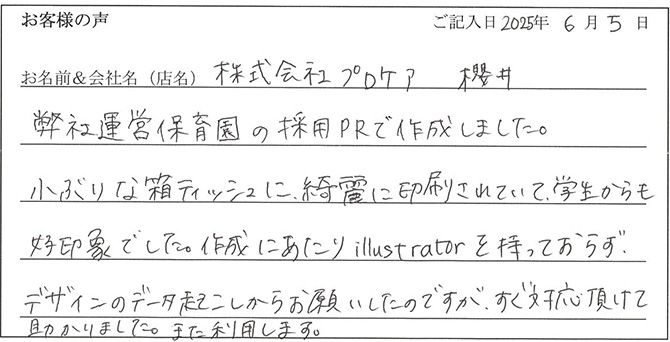 お客様の声 ご記入日 2025年 6月 5日
お名前&会社名（店名） 株式会社プロケア 櫻井
弊社運営保育園の採用PRで作成しました。
小ぶりな箱ティッシュに、綺麗に印刷されていて、学生からも
好印象でした。作成にあたりillustratorを持っておらず、
デザインのデータ起こしからお願いしたのですが、すぐ対応頂けて
助かりました。また利用します。